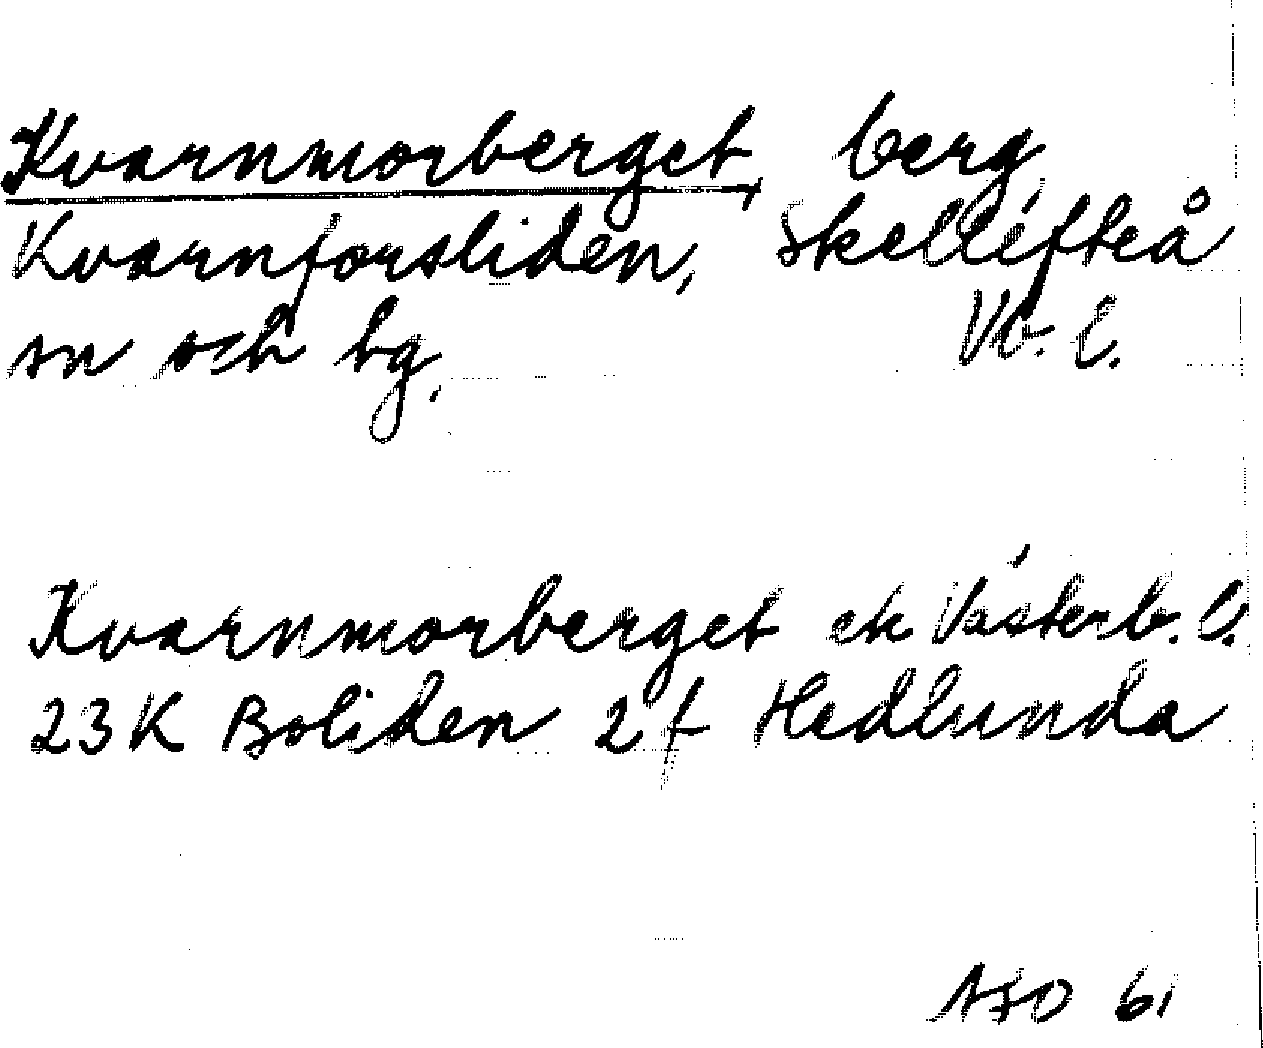 Kvarnmorberget, berg
Kvarnforsliden, Skellefteå
sn och bg. Vb. l.
Kvarnmorberget ek Västerb. l.
23K Boliden 2f Hedlunda
61